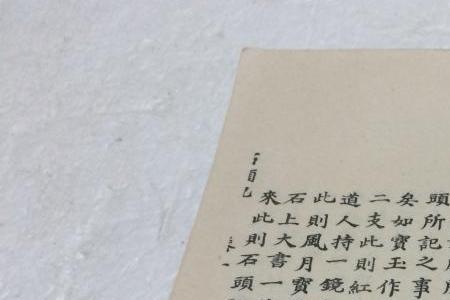 頭所記之事
矣如寶玉作
二支此則紅
道人持一鏡
此則風月寶
石上大書一
來此則石頭